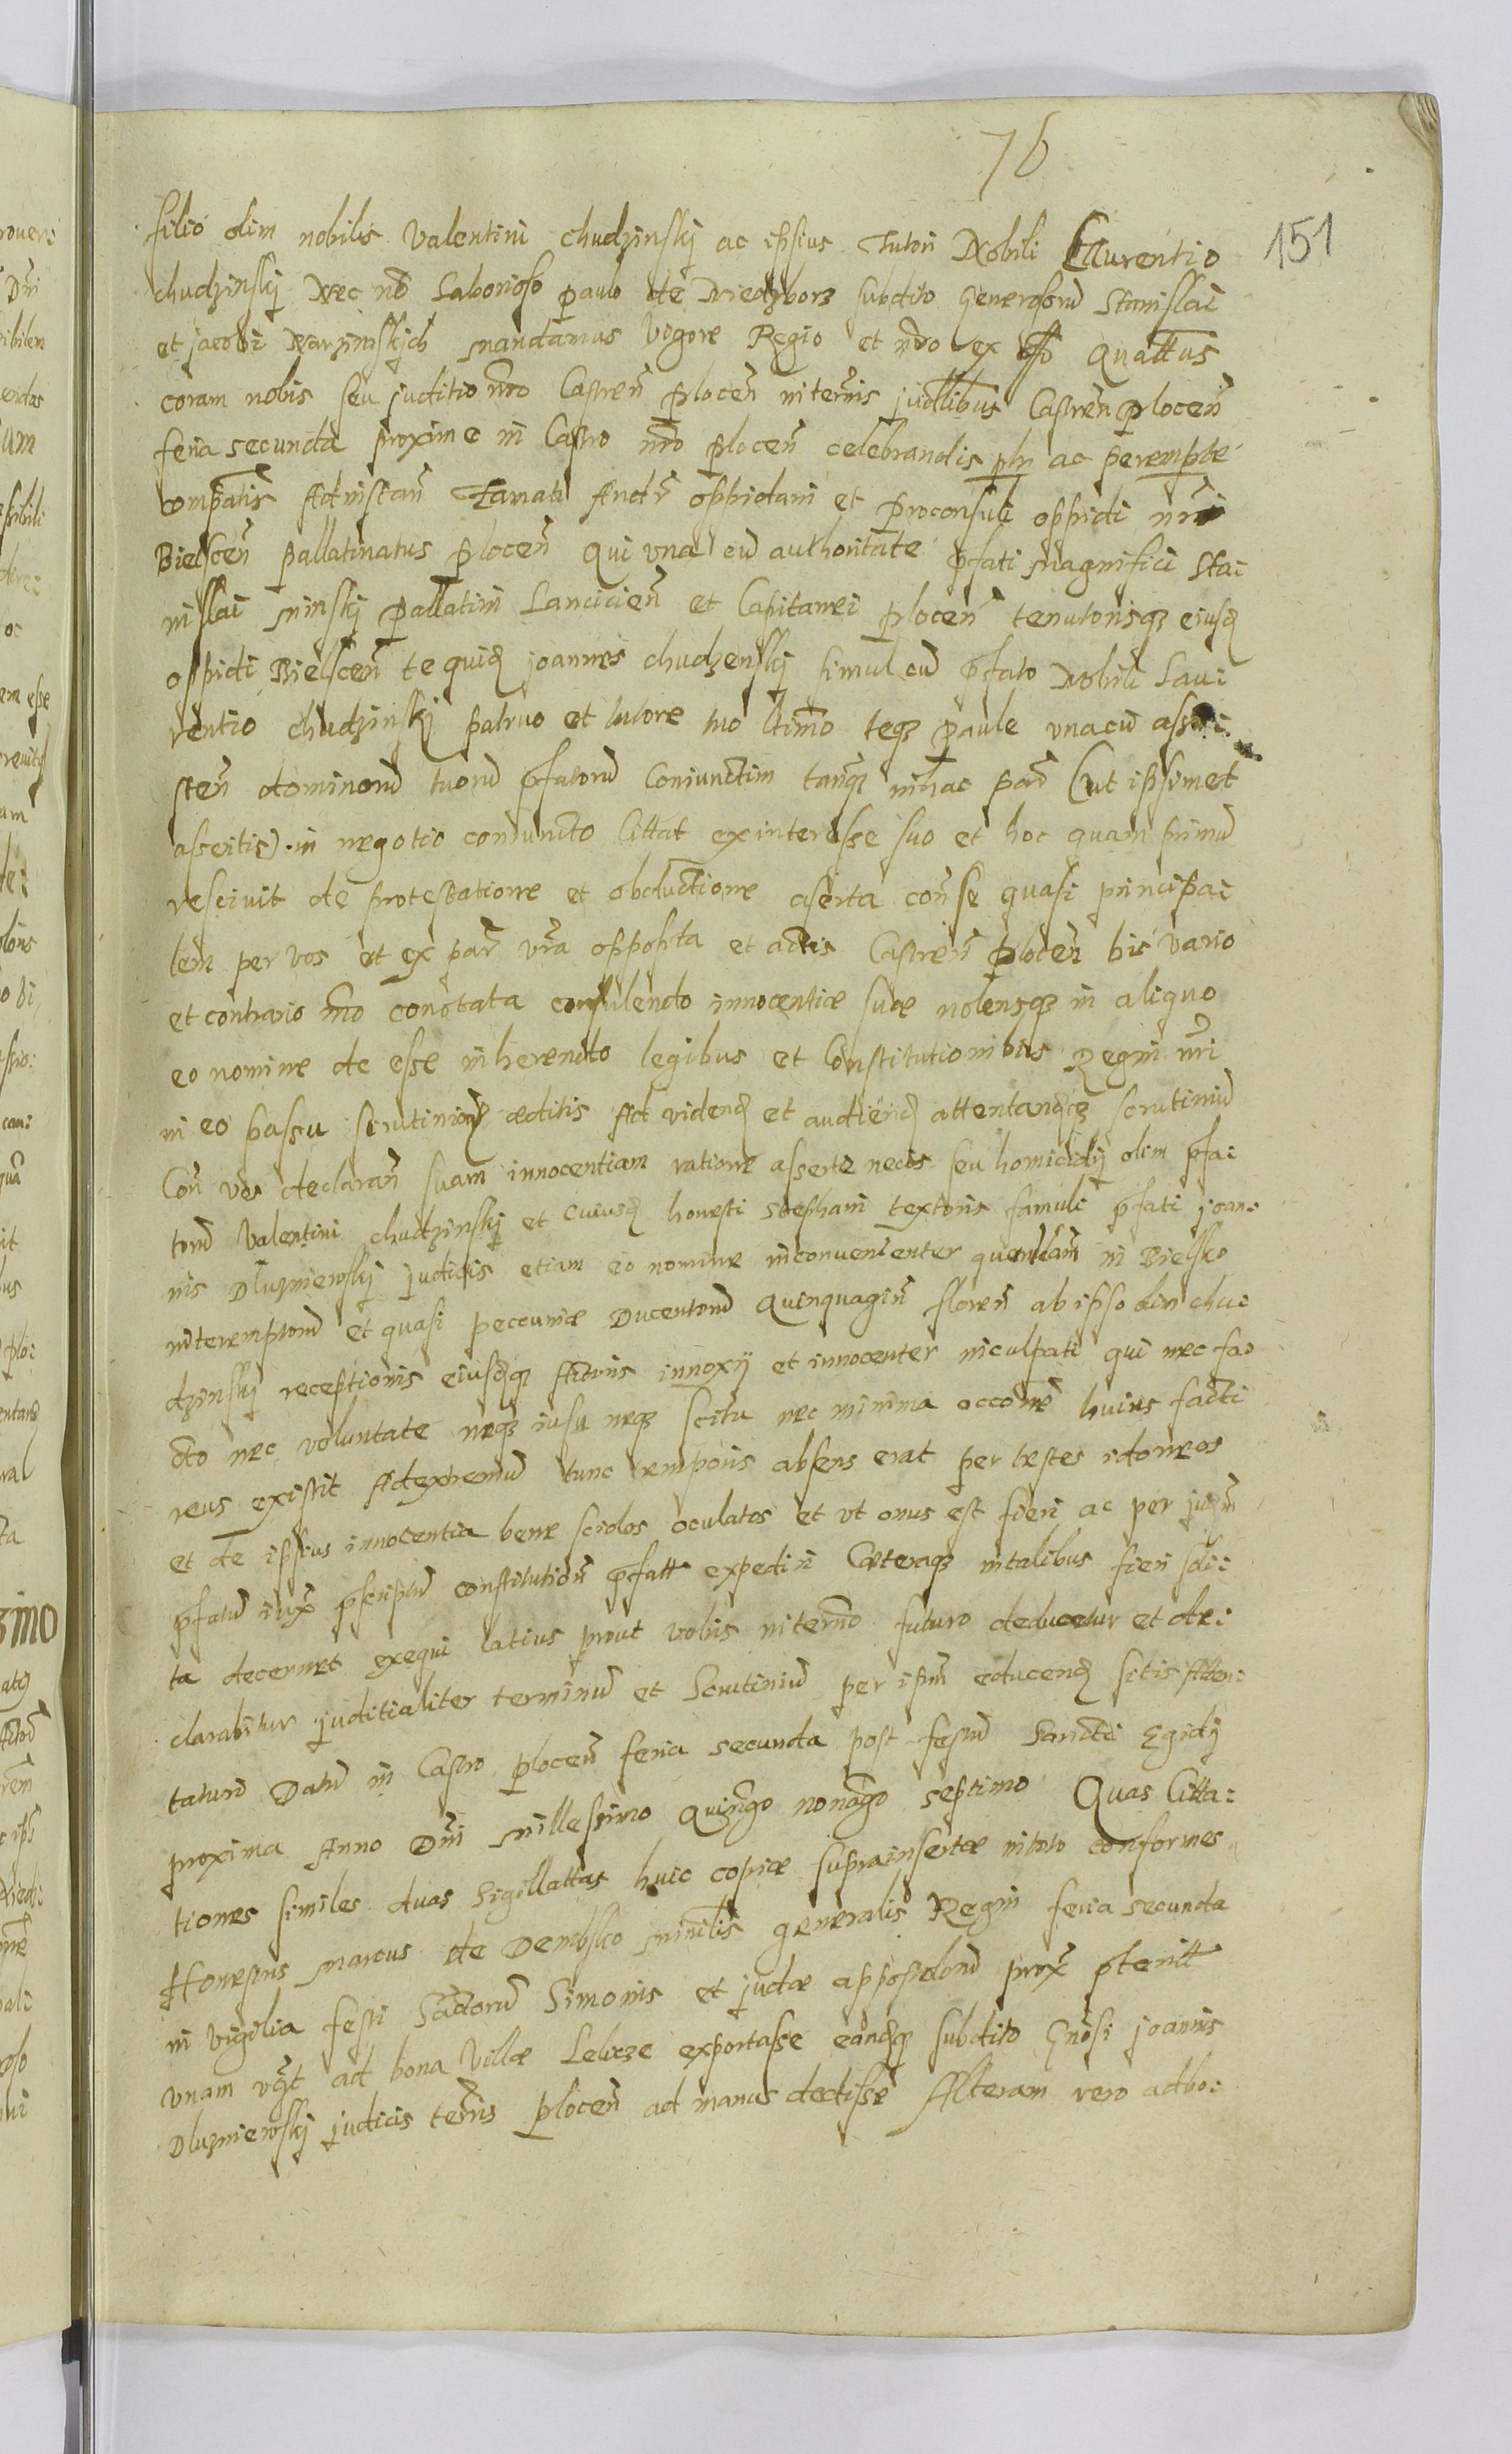 76
151
filio olim nobilis Valentini chudzinskj ac ipsius Tutori Nobili Laurentio
chudzinskj Nec nō Laborioso paulo de Niedzborz subdito Generosorū Stanislai
et jacobi Narzimskijch mandamus Vigore Regio et nr̄o ex offō Quattūs
coram nobis seu juditio nr̄o Castren̄ plocen̄ in ter̄nis judlibus Castren̄ plocen̄
feria secunda proxime in Castro nr̄o plocen̄ celebrandis plr ac perempte
compatis Ad instan̄ Famati Andr̄ oppidani et proconsuli oppidi nr̄i
Bielscen̄ pallatinatus plocen̄ Qui vna cū authoritate pfati Magnifici Sta:
nislai Minskj pallatini Lancicien̄ et Capitanei plocen̄ tenutorisqz eiusd
oppidi Bielscen̄ te quid joannes chudzenskj simul cū pfato Nobili Lau:
rentio chudzinskj patruo et tutore tuo ltimo teqz paule vnacū assi:
sten̄ dominorū tuorū pfatorū Coniunctim tanqz in hac par̄ (ut ipsimet
asseritis) in negotio coniuncto Cittat ex interesse suo et hoc quam primū
rescivit de protestatione et obductione aserta con̄ se quasi principa:
lem per vos et ex par̄ vr̄a opposita et actis Castren̄ plocen̄ bis vario
et contrario mo conotata consulendo innocentiæ suæ nolensqz in aliquo
eo nomine de esse inherendo legibus et Constitutionibus Regni nr̄i
in eo passu scrutinior̄ æditis Ad videnḍ et audienḍ attentandqz scrutiniū
Con̄ vos declaran̄ suam innocentiam ratione asserte necis seu homicidij olim pfa:
torū Valentini chudzinskj et cuiusd honesti Stephani textoris famuli pfati joan:
nis Dluzniewskj judicis etiam eo nomine inconuenienter quendam in Bielsko
interemptorū et quasi pecuniæ Ducentorū Quinquagin̄ floren̄ ab ipso olim chu:
dzinskj receptionis eiusdqz Actoris innoxij et innocenter inculpati qui nec fa:
cto nec voluntate neqz iusu neqz scitu nec minima occōne huius facti
reus existit Ad extremū tunc temporis absens erat per testes idoneos
et de ipsius innocentia bene scidos oculatos et vt onus est fieri ac per jurm̄
pfatū iux̄ pscriptū constitution̄ pfatt expediri Cæteraqz in talibus fieri soli:
ta decernet exequi latius prout vobis in ter̄no futuro deducetur et de:
clarabitur juditialiter terminū et Scrutiniū per ipsm̄ educend sitis Atten:
taturi Datū in Castro plocen̄ feria secunda post festū Sancti Egidij
proxima Anno Dn̄i Millessimo Quingo nonago septimo Quas Citta:
tiones similes duas Sigillattas huic copiæ suprainsertæ in toto conformes
Honestus Marcus de Dembsko Ministls generalis Regni feria secunda
in vigilia festi Sāctorū Simonis et judæ appostolorū prox̄ pteritt
vnam vqt ad bona Villæ Leluze exportasse eandqz subdito Gnosi joannis
Dluzniewskj judicis terris plocen̄ ad manus dedisse Alteram vero ad bo: